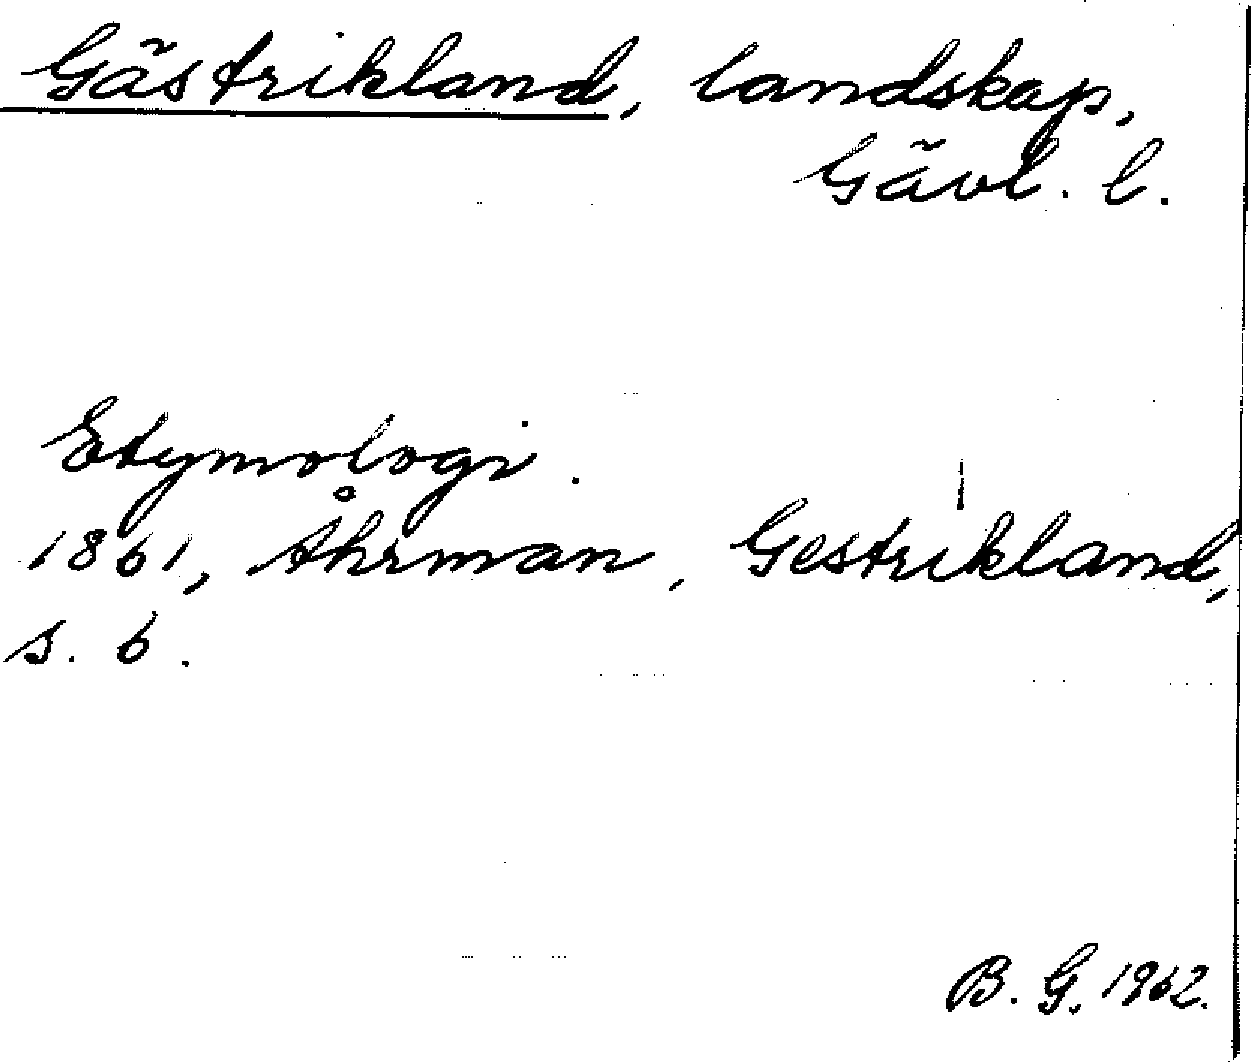 Gästrikland, landskap,
Gävl. l.
Etymologi.
1861, Åhrman, Gestrikland,
s. 6.
B. G. 1962.